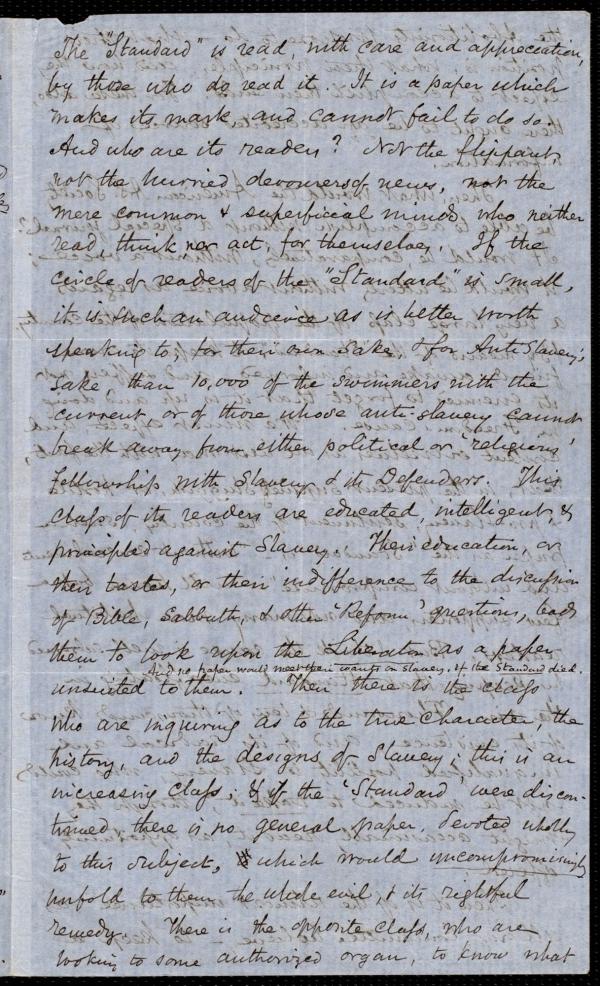 The "Standard" is read, with care and appreciation,
by those who do read it. It is a paper which
makes its mark, and cannot fail to do so.
And who are its readers? Not the flippant,
not the hurried devourers of news, not the
mere common & superficial minds, who neither
read, think nor act, for themselves. If the
circle of readers of the "Standard" is small,
it is such an audience as is better worth
speaking to, for their own sake, & for Anti-Slavery's
sake, than 10,000 of the swimmers with the
current, or of those whose anti-slavery cannot
break away from either political or 'religious'
fellowship with Slavery & its Defenders. This
class of its readers are educated, intelligent, &
principled against Slavery. Their education, or
their tastes, or their indifference to the discussion
of Bible, Sabbath, & other 'Reform' questions, leads
them to look upon the Liberator as a paper
And no paper would meet their wants on Slavery, if the Standard died.
unsuited to them. Then there is the class
who are inquiring as to the true character, the
history, and the designs of Slavery; this is an
increasing class; & if the 'Standard' were discon-
tinued there is no general paper, devoted wholly
to this subject, which would uncompromisingly
unfold to them the whole evil, & its rightful
remedy. There is the opposite class, who are
looking to some authorized organ, to know what